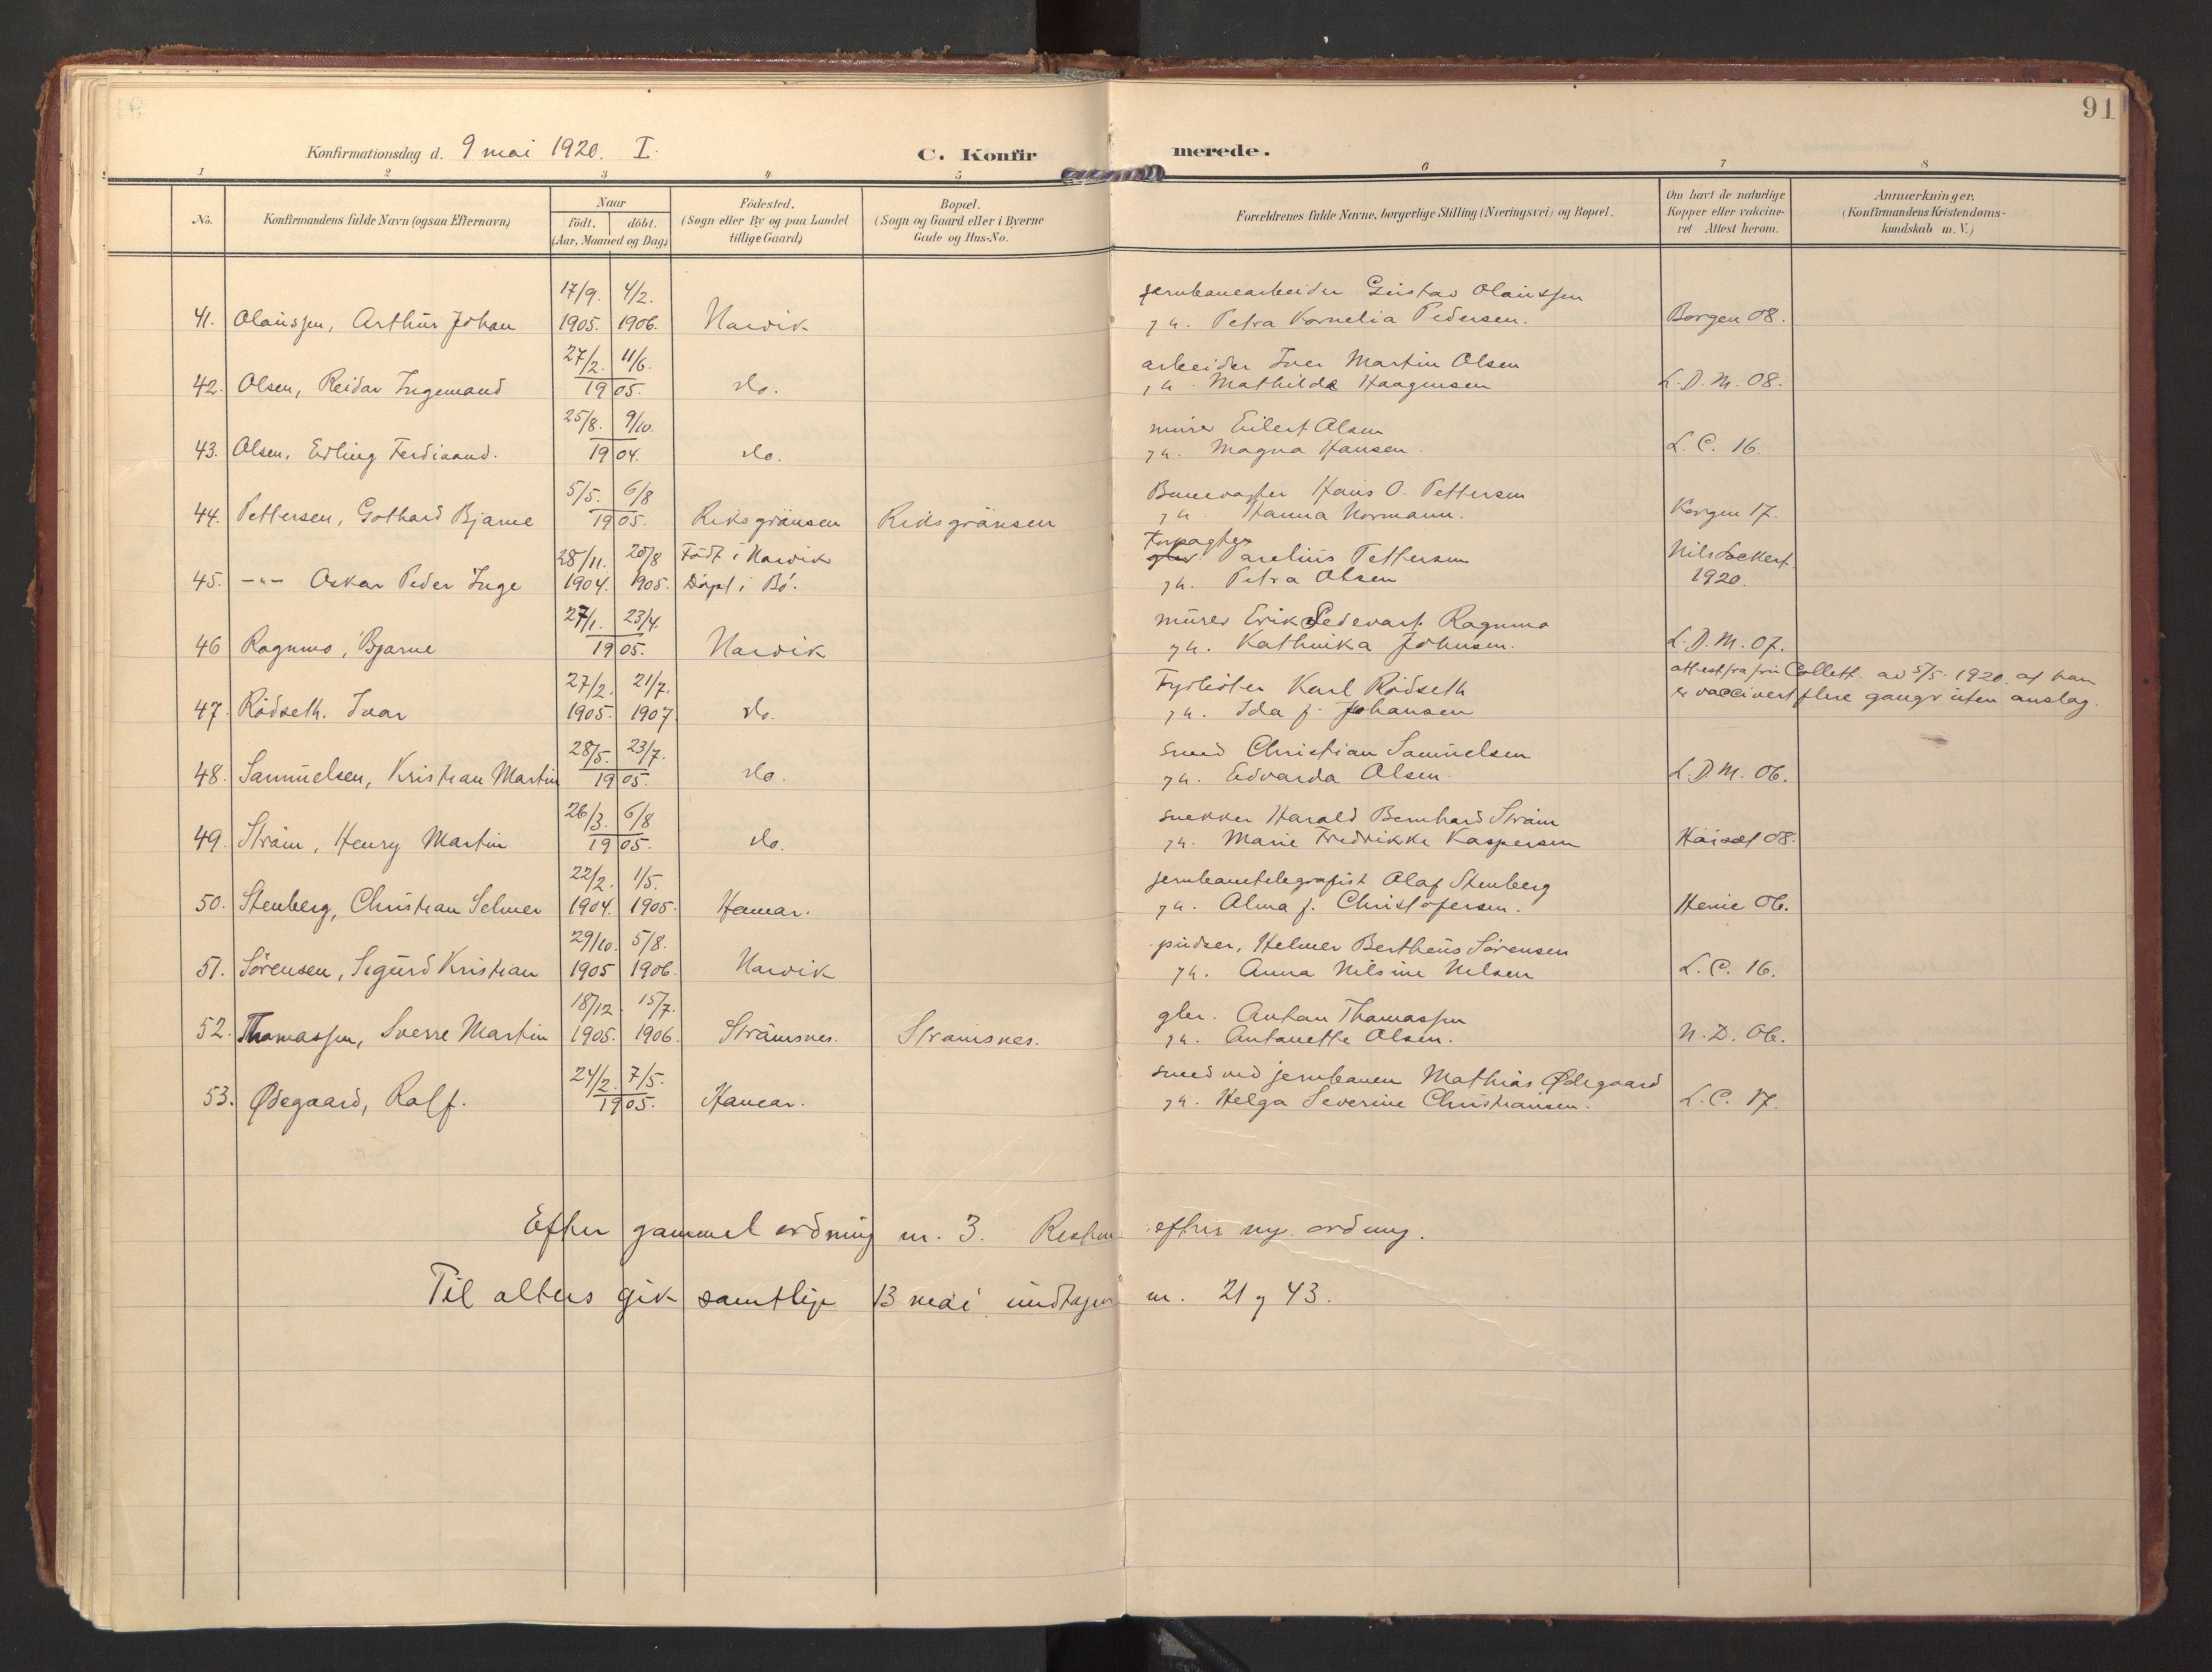 91
Konfirmationsdag d. 9 mai 1920. I.
C. Konfirmerede.
1 2 3 4 5 6 7 8
No.
Konfirmandens fulde Navn (ogsaa Efternavn)
Naar
født. döbt.
(Aar, Maaned og Dag)
Födested.
(Sogn eller By og paa Landet
tillige Gaard)
Bopæl.
(Sogn og Gaard eller i Byerne
Gade og Hus-No.
Forældrenes fulde Navne, borgerlige Stilling (Næringsvei) og Bopæl.
Om havt de naturlige
Kopper eller vakcine-
ret Attest herom.
Anmærkninger.
(Konfirmandens Kristendoms-
kundskab m. V.)
17/9. 4/2. jernbanearbeider Gustav Olaussen
41. Olaussen, Arthur Johan 1905. 1906. Narvik Petra Kornelia Pedersen. Borgen 08.
27/2. 11/6. arbeider Iver Martin Olsen
42. Olsen, Reidar Ingemand 1905. do. Mathilde Haagensen L.D.M. 08.
25/8. 9/10. murer Eilert Olsen
43. Olsen, Erling Ferdinand. 1904. do. Magna Hansen L.C. 16.
5/5. 6/8 Banevagter Hans O. Pettersen
44. Pettersen, Gothard Bjarne 1905. Riksgränsen Riksgränsen Hanna Normann. Korgen 17.
28/11. 20/8 Födt i Narvik Forpagter Parelius Pettersen Nils Lockert
45. -"- Oskar Peder Inge 1904. 1905. Döpt i Bö. Petra Olsen 1920.
27/1. 23/4. murer Erik Sedevart Ragnmo
46 Ragnmo, Bjarne 1905. Narvik Kathinka Johnsen. L.D.M. 07.
27/2. 21/7. Fyrböter Karl Rödseth attest fra fru Collett av 5/5. 1920 at han
47. Rödseth. Ivar 1905. 1907 do. Ida f. Johansen er vaccinert flere ganger uten anslag.
28/5. 23/7. smed Christian Samuelsen
48. Samuelsen, Kristian Martin 1905. do. Edvarda Olsen L.D.M. 06.
26/3. 6/8 snekker Harald Bernhard Ström
49. Ström, Henry Martin 1905. do. Marie Fredrikke Kaspersen 08.
22/2. 1/5. jernbanetelegrafist Olaf Stenberg
50. Stenberg, Christian Selmer 1904. 1905. Hamar. Alma f. Christofersen. Henie 06.
29/10. 5/8. pudser, Helmer Bertheus Sörensen
51. Sörensen, Sigurd Kristian 1905 1906. Narvik Anna Nilsine Nilsen L.C. 16.
18/12. 15/7. gbr. Anton Thomassen
52. Thomassen, Sverre Martin 1905. 1906. Strömsnes. Strömsnes. Antonette Olsen. N.D. 06.
24/2. 7/5. smed ved jernbanen Mathias Ødegaard
53. Ødegaard, Rolf. 1905. Hamar. Helga Severine Christiansen. L.C. 17.
Efter gammel ordning nr. 3. Resten efter ny ordning.
Til alters gik samtlige 13 mai undtagen nr. 21 og 43.